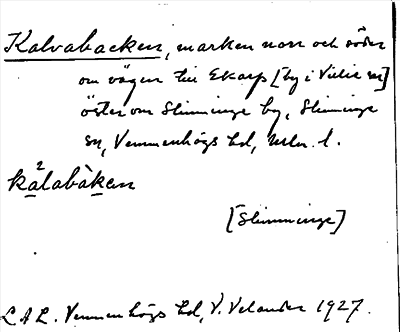 Kalvabacken, marken norr och söder
om vägen till Ekarp [by i Vilie sn]
öster om Slimminge by, Slimminge
sn, Vemmenhögs hd, Mlm. l.
kălabàken
[Slimminge]
LAL. Vemmenhögs hd, V. Velander 1927.